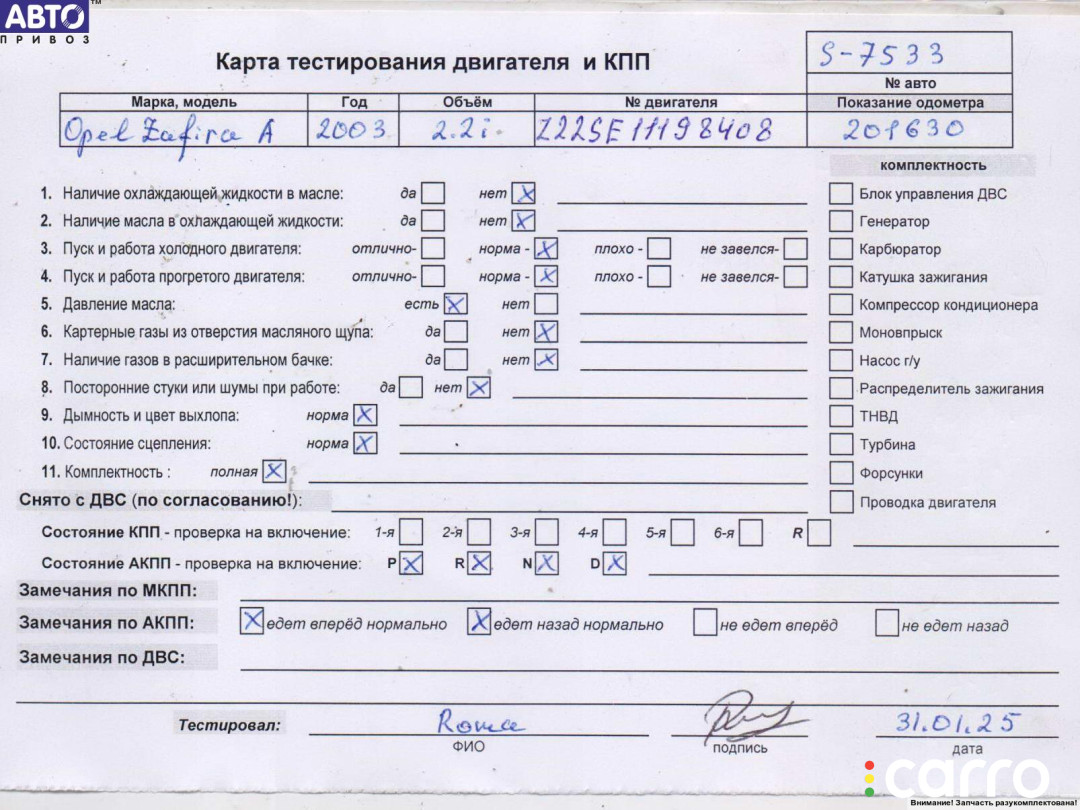 АВТО™
ПРИВОЗ
Карта тестирования двигателя и КПП
S-7533
№ авто
Марка, модель Год Объём № двигателя Показание одометра
Opel Zafira A 2003 2.2i Z22SE11198408 201630
комплектность
1. Наличие охлаждающей жидкости в масле: да нет X Блок управления ДВС
2. Наличие масла в охлаждающей жидкости: да нет X Генератор
3. Пуск и работа холодного двигателя: отлично- норма - X плохо - не завелся- Карбюратор
4. Пуск и работа прогретого двигателя: отлично- норма - X плохо - не завелся- Катушка зажигания
5. Давление масла: есть X нет Компрессор кондиционера
6. Картерные газы из отверстия масляного щупа: да нет X Моновпрыск
7. Наличие газов в расширительном бачке: да нет X Насос г/у
8. Посторонние стуки или шумы при работе: да нет X Распределитель зажигания
9. Дымность и цвет выхлопа: норма X ТНВД
10. Состояние сцепления: норма X Турбина
11. Комплектность : полная X Форсунки
Снято с ДВС (по согласованию!): Проводка двигателя
Состояние КПП - проверка на включение: 1-я 2-я 3-я 4-я 5-я 6-я R
Состояние АКПП - проверка на включение: P X R X N X D X
Замечания по МКПП:
Замечания по АКПП: X едет вперёд нормально X едет назад нормально не едет вперёд не едет назад
Замечания по ДВС:
Тестировал: Roma 31.01.25
ФИО подпись дата
carro
Внимание! Запчасть разукомплектована!